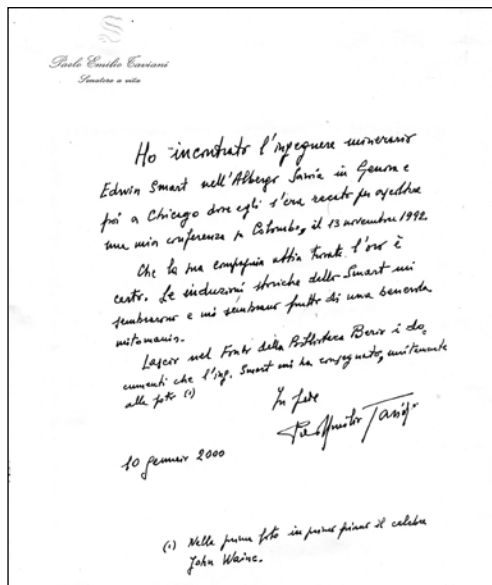 S
Paolo Emilio Taviani
Senatore a vita
Ho incontrato l'ingegnere minerario
Edwin Smart nell'Albergo Savoia in Genova e
poi a Chicago dove egli s'era recato per ascoltare
una mia conferenza su Colombo, il 13 novembre 1992.
Che la sua compagnia abbia trovato l'oro è
certo. Le induzioni storiche dello Smart mi
sembrarono e mi sembrano frutto di una benevola
mitomania.
Lascio nel Fondo della Biblioteca Berio i do-
cumenti che l'ing. Smart mi ha consegnato, unitamente
alle foto (1)
In fede
Paolo Emilio Taviani
10 gennaio 2000
(1) Nella prima foto in primo piano il celebre
John Waine.